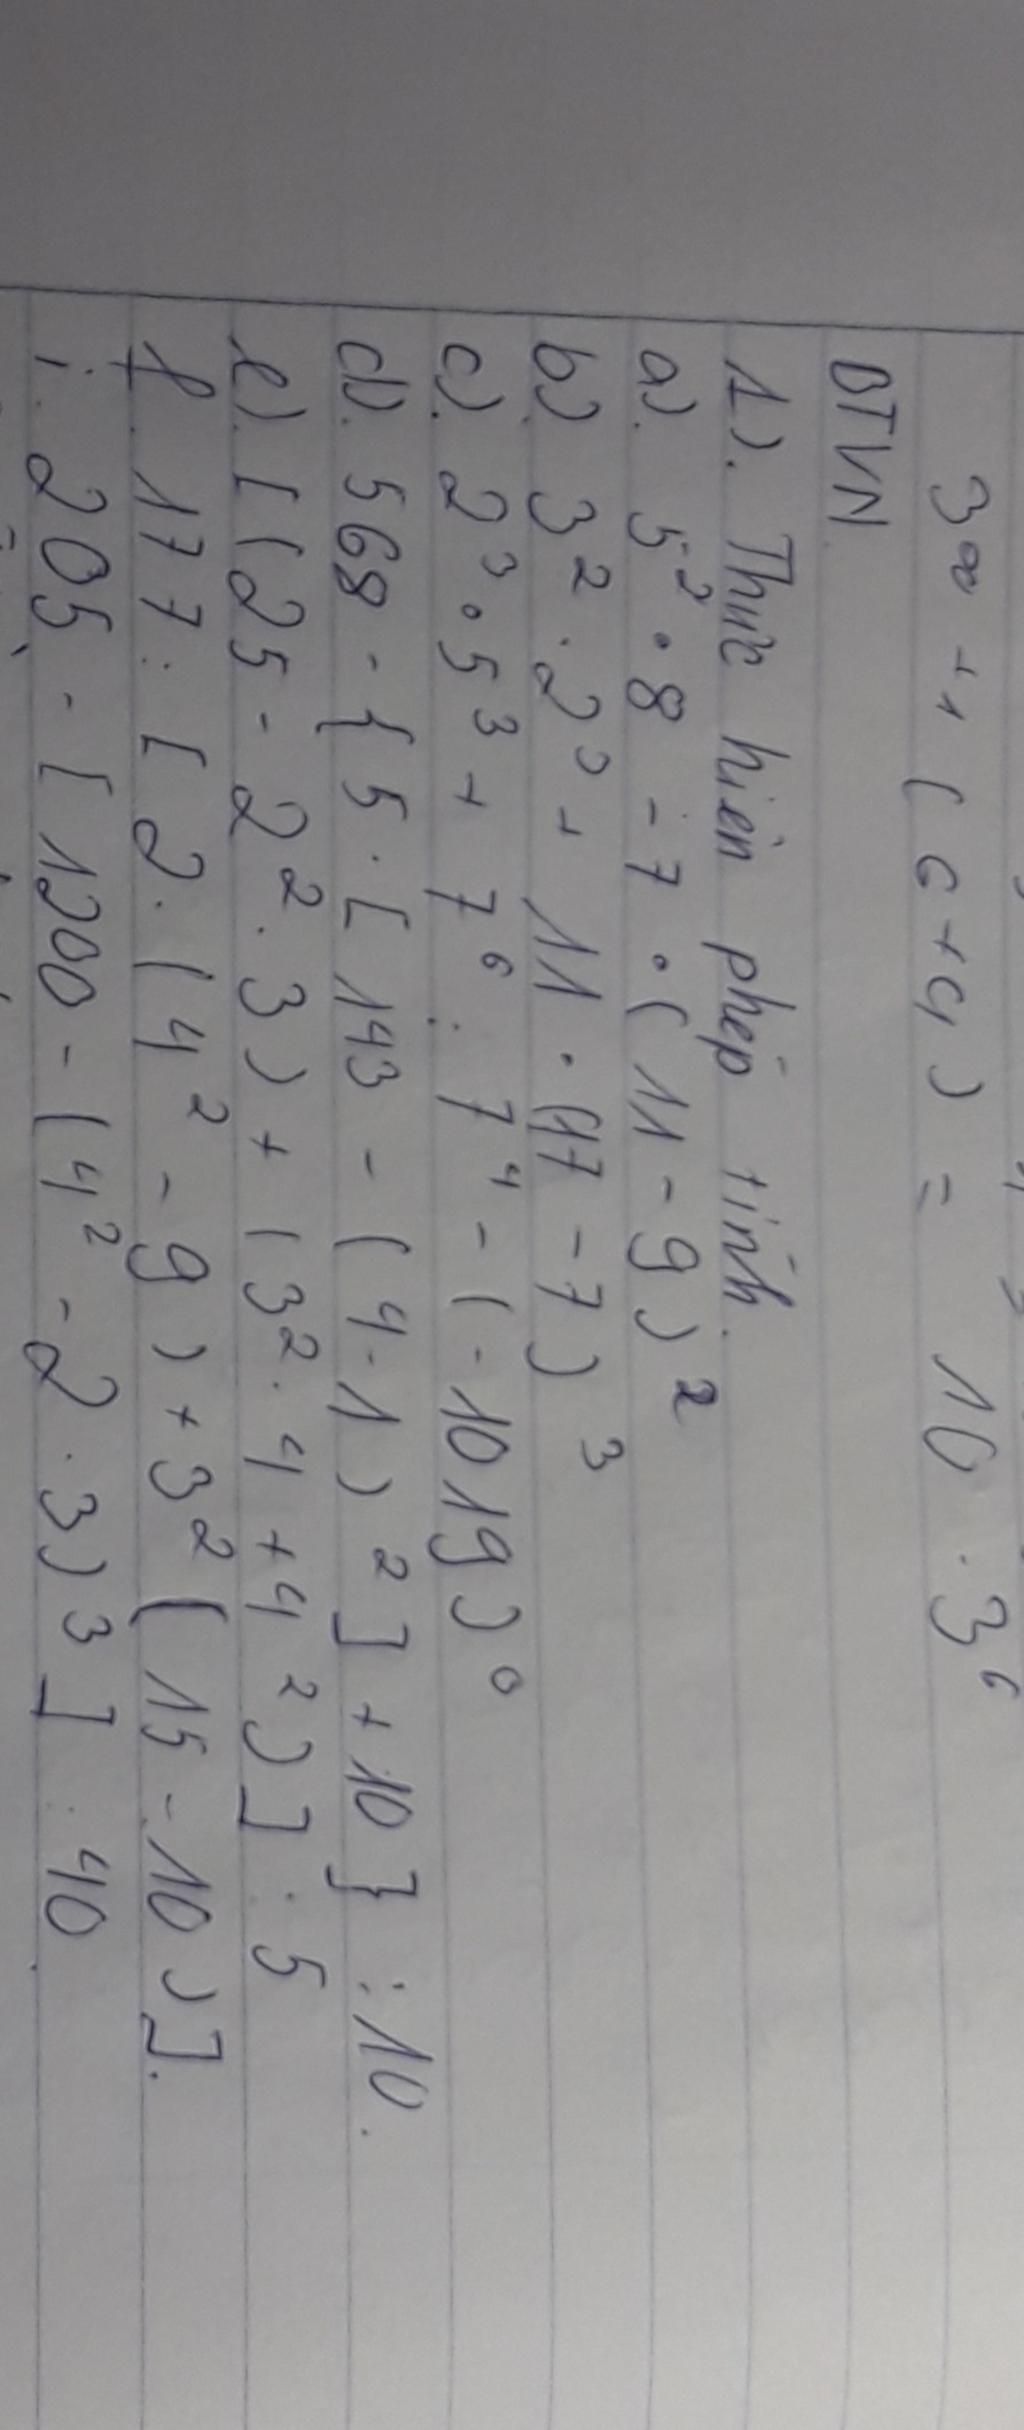 3⁰⁰ + 1 ( c + c, ) = 10 . 3⁶
BTVN
1). Thực hiện phép tính.
a). 5² . 8 - 7 . ( 11 - 9 )²
b) 3² . 2³ + 11 . (17 - 7 )³
c). 2³ . 5³ + 7⁶ : 7⁴ - ( - 1019 )⁰
d). 568 - { 5 . [ 143 - ( 4 - 1 )² ] + 10 } : 10.
e). [ (25 - 2² . 3 ) + ( 3² . 4 + 4² ) ] : 5
f. 177 : [ 2 . ( 4² - 9 ) + 3² ( 15 - 10 ) ].
i. 205 - [ 1200 - ( 4² - 2 . 3 )³ ] : 40